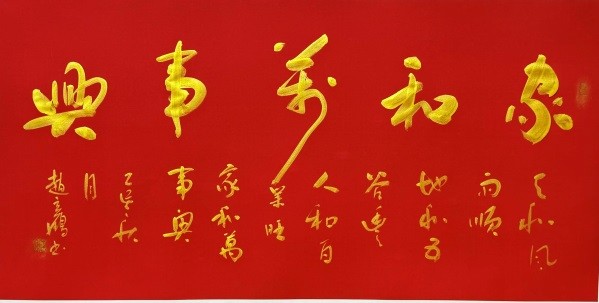 家和萬事興
天和風
雨順
地和五
谷豐
人和百
業旺
家和萬
事興
秋
月
趙鴻書